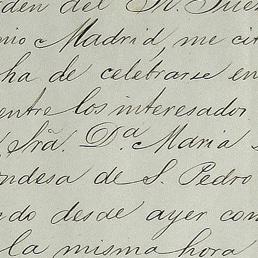 orden del Sr. Juez
nio Madrid, me cit
ha de celebrarse en
entre los interesador
Sra. Da. Maria
ondesa de S. Pedro
edo desde ayer con
la misma hora